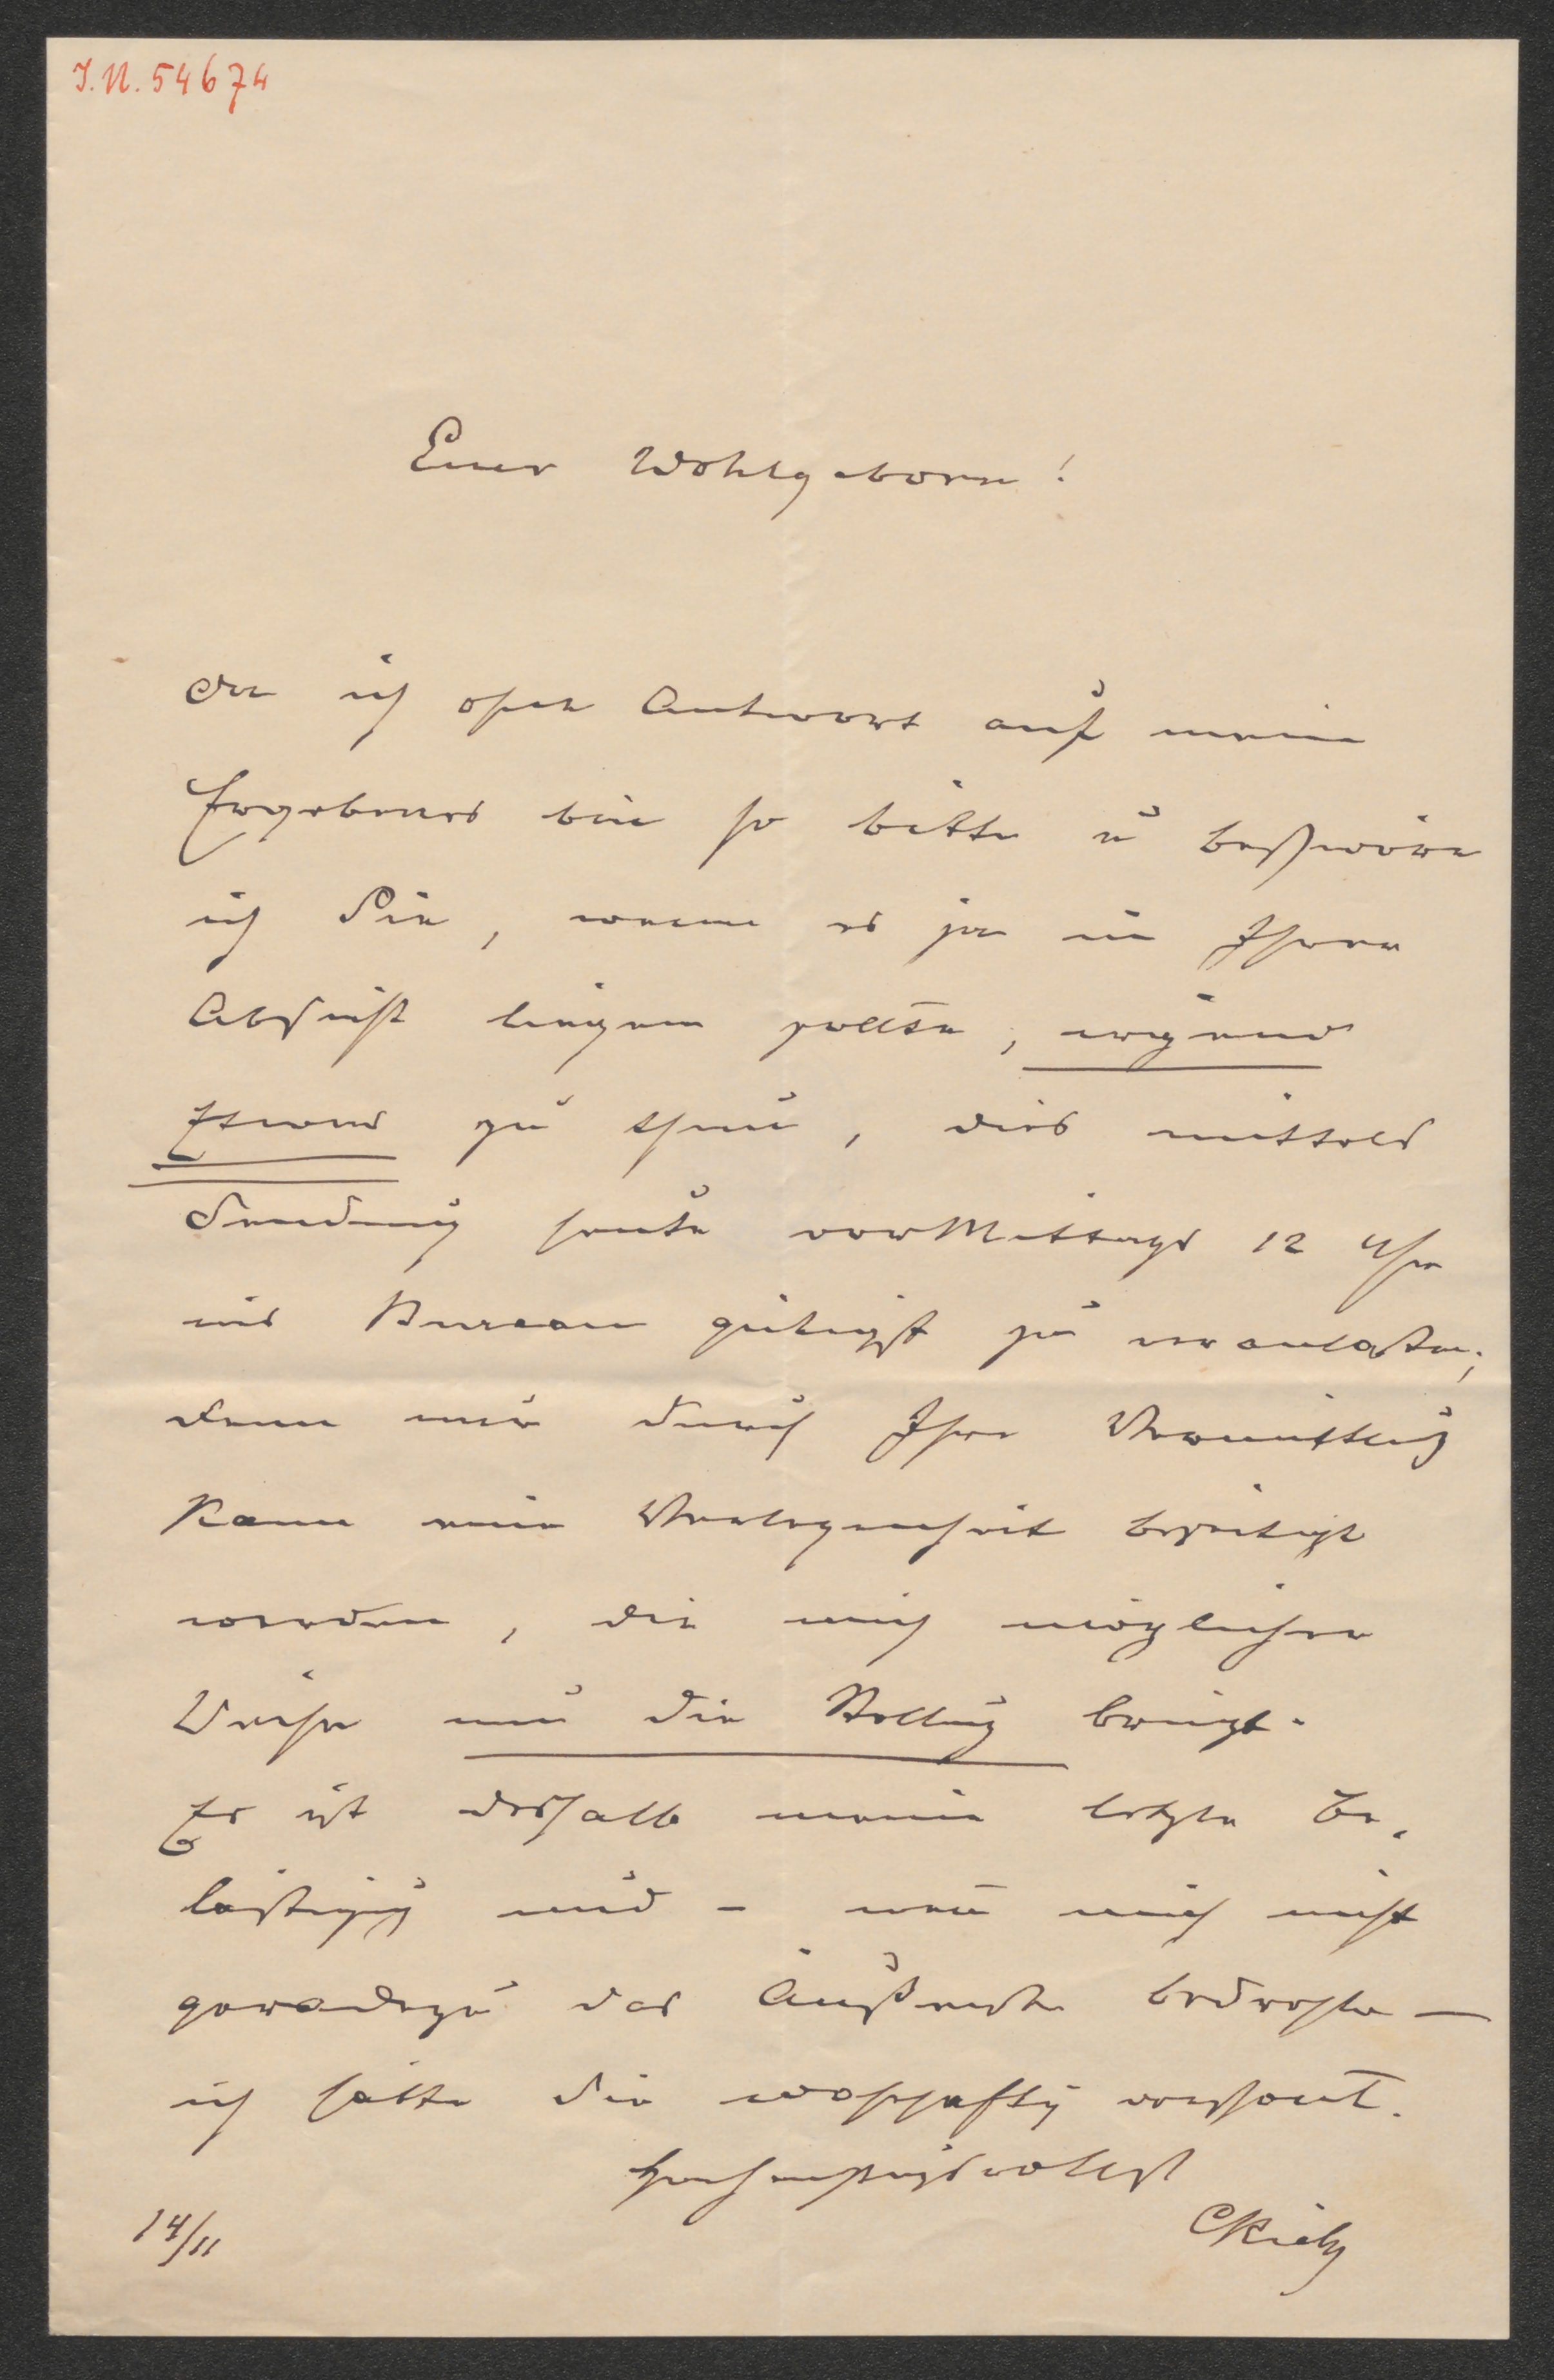 I.N. 54674
Euer Wohlgeboren!
Da ich ohne Antwort auf mein
Ergebenes bin so bitte u beschwöre
ich Sie, wenn es ja in Ihrer
Absicht liegen sollte, irgend
Etwas zu thun, dies mittels
Sendung heute vor Mittags 12 Uhr
ins Bureau gütigst zu veranlassen;
denn nur durch Ihre Vermittlung
kann eine Verlegenheit beseitigt
werden, die mich möglicher
Weise um die Stellung bringt.
Es ist deshalb meine letzte Be-
lästigung und – wen̅ mich nicht
geradezu das Äußerste bedrohte —
ich hätte Sie wahrhaftig verschont.
Hochachtungsvollst
14/11